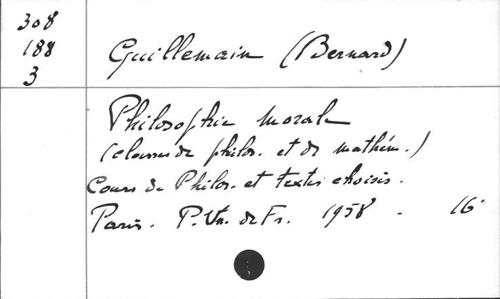 308
188
3
Guillemain (Bernard)
Philosophie morale
(classes de philos. et de mathém.)
Cours de Philos. et textes choisis.
Paris. P. Un. de Fr. 1958. 16°